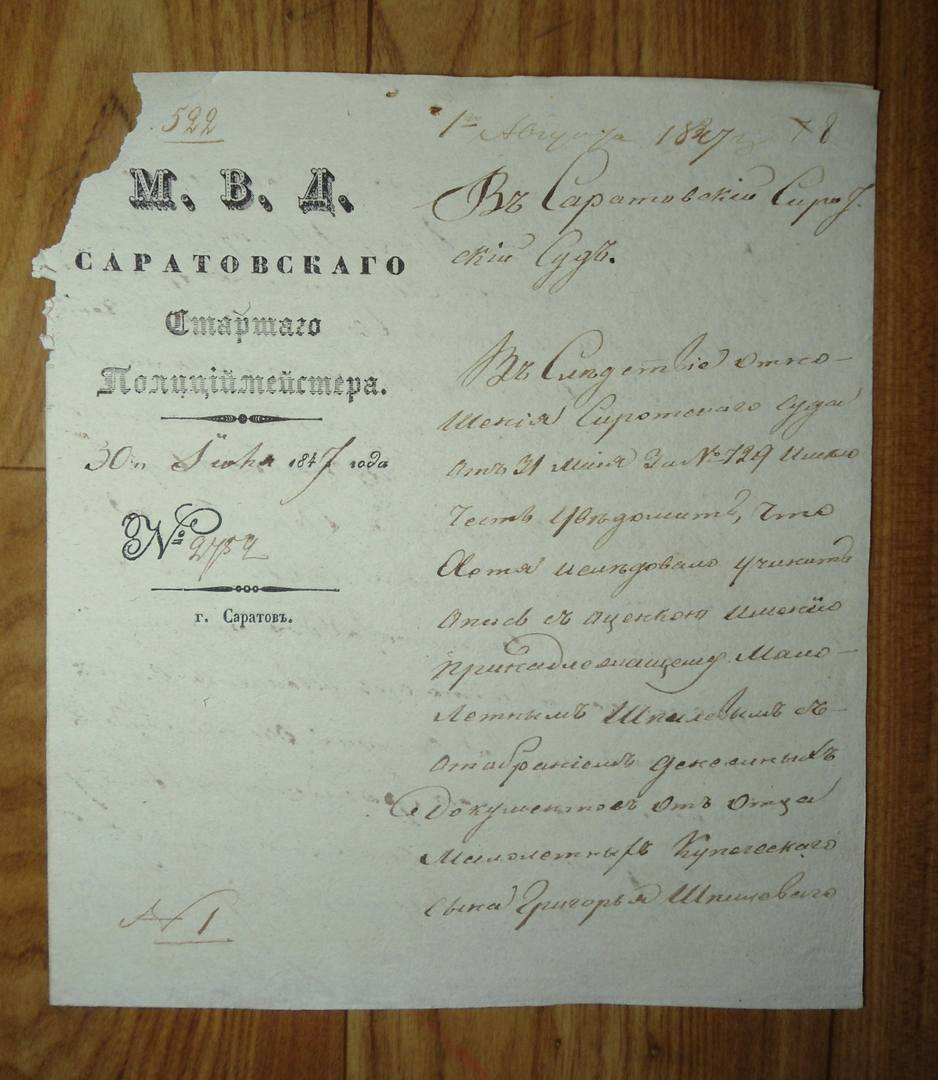 522
М. В. Д.
САРАТОВСКАГО
Старшаго
Полиціймейстера.
30го Іюня 1847 года
№ 2752
г. Саратовъ.
№ 1
1го Августа 1847 г.
Въ Саратовскій Сирот-
скій Судъ.
Въ Слѣдствіе отно-
шенія Сиротскаго Суда
отъ 31 Маія За № 729 имѣю
честь увѣдомить, что
хотя и слѣдовало учинить
опись съ оценкою имѣнію
принадлежащему Мало-
летнымъ съ-
отобраніемъ денежныхъ
документовъ отъ отца
Малолетныхъ Купеческаго
сына Григорья